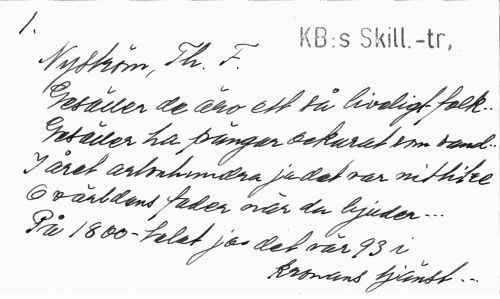 1.
KB:s Skill.-tr,
Nyström, Th. F.
Gesäller de äro ett så livligt folk..
Gesäller ha pängar ackurat som sand..
I året artonhundra ja det var nittitre
O världens fader när du bjuder...
På 1800-talet ja det var 93 i
kronans tjänst...